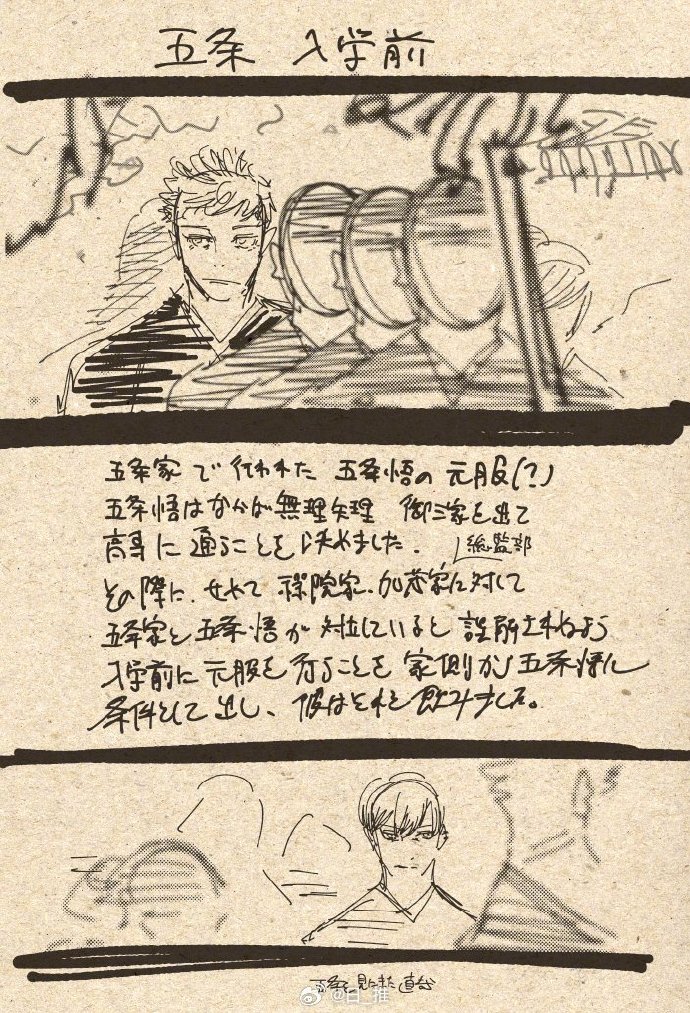 五条 入学前
五条家で行われた 五条悟の 元服(?)
五条悟はなかば無理矢理 御三家を出て
高専に通うことを決めました。
総監部
その際に、せめて 禪院家、加茂家に対して
五条家と五条悟が対立していると誤解されぬよう
入学前に元服を行うことを 家側から五条悟に
条件として出し、彼はそれを飲みました。
五条を見にきた直哉
@日_推